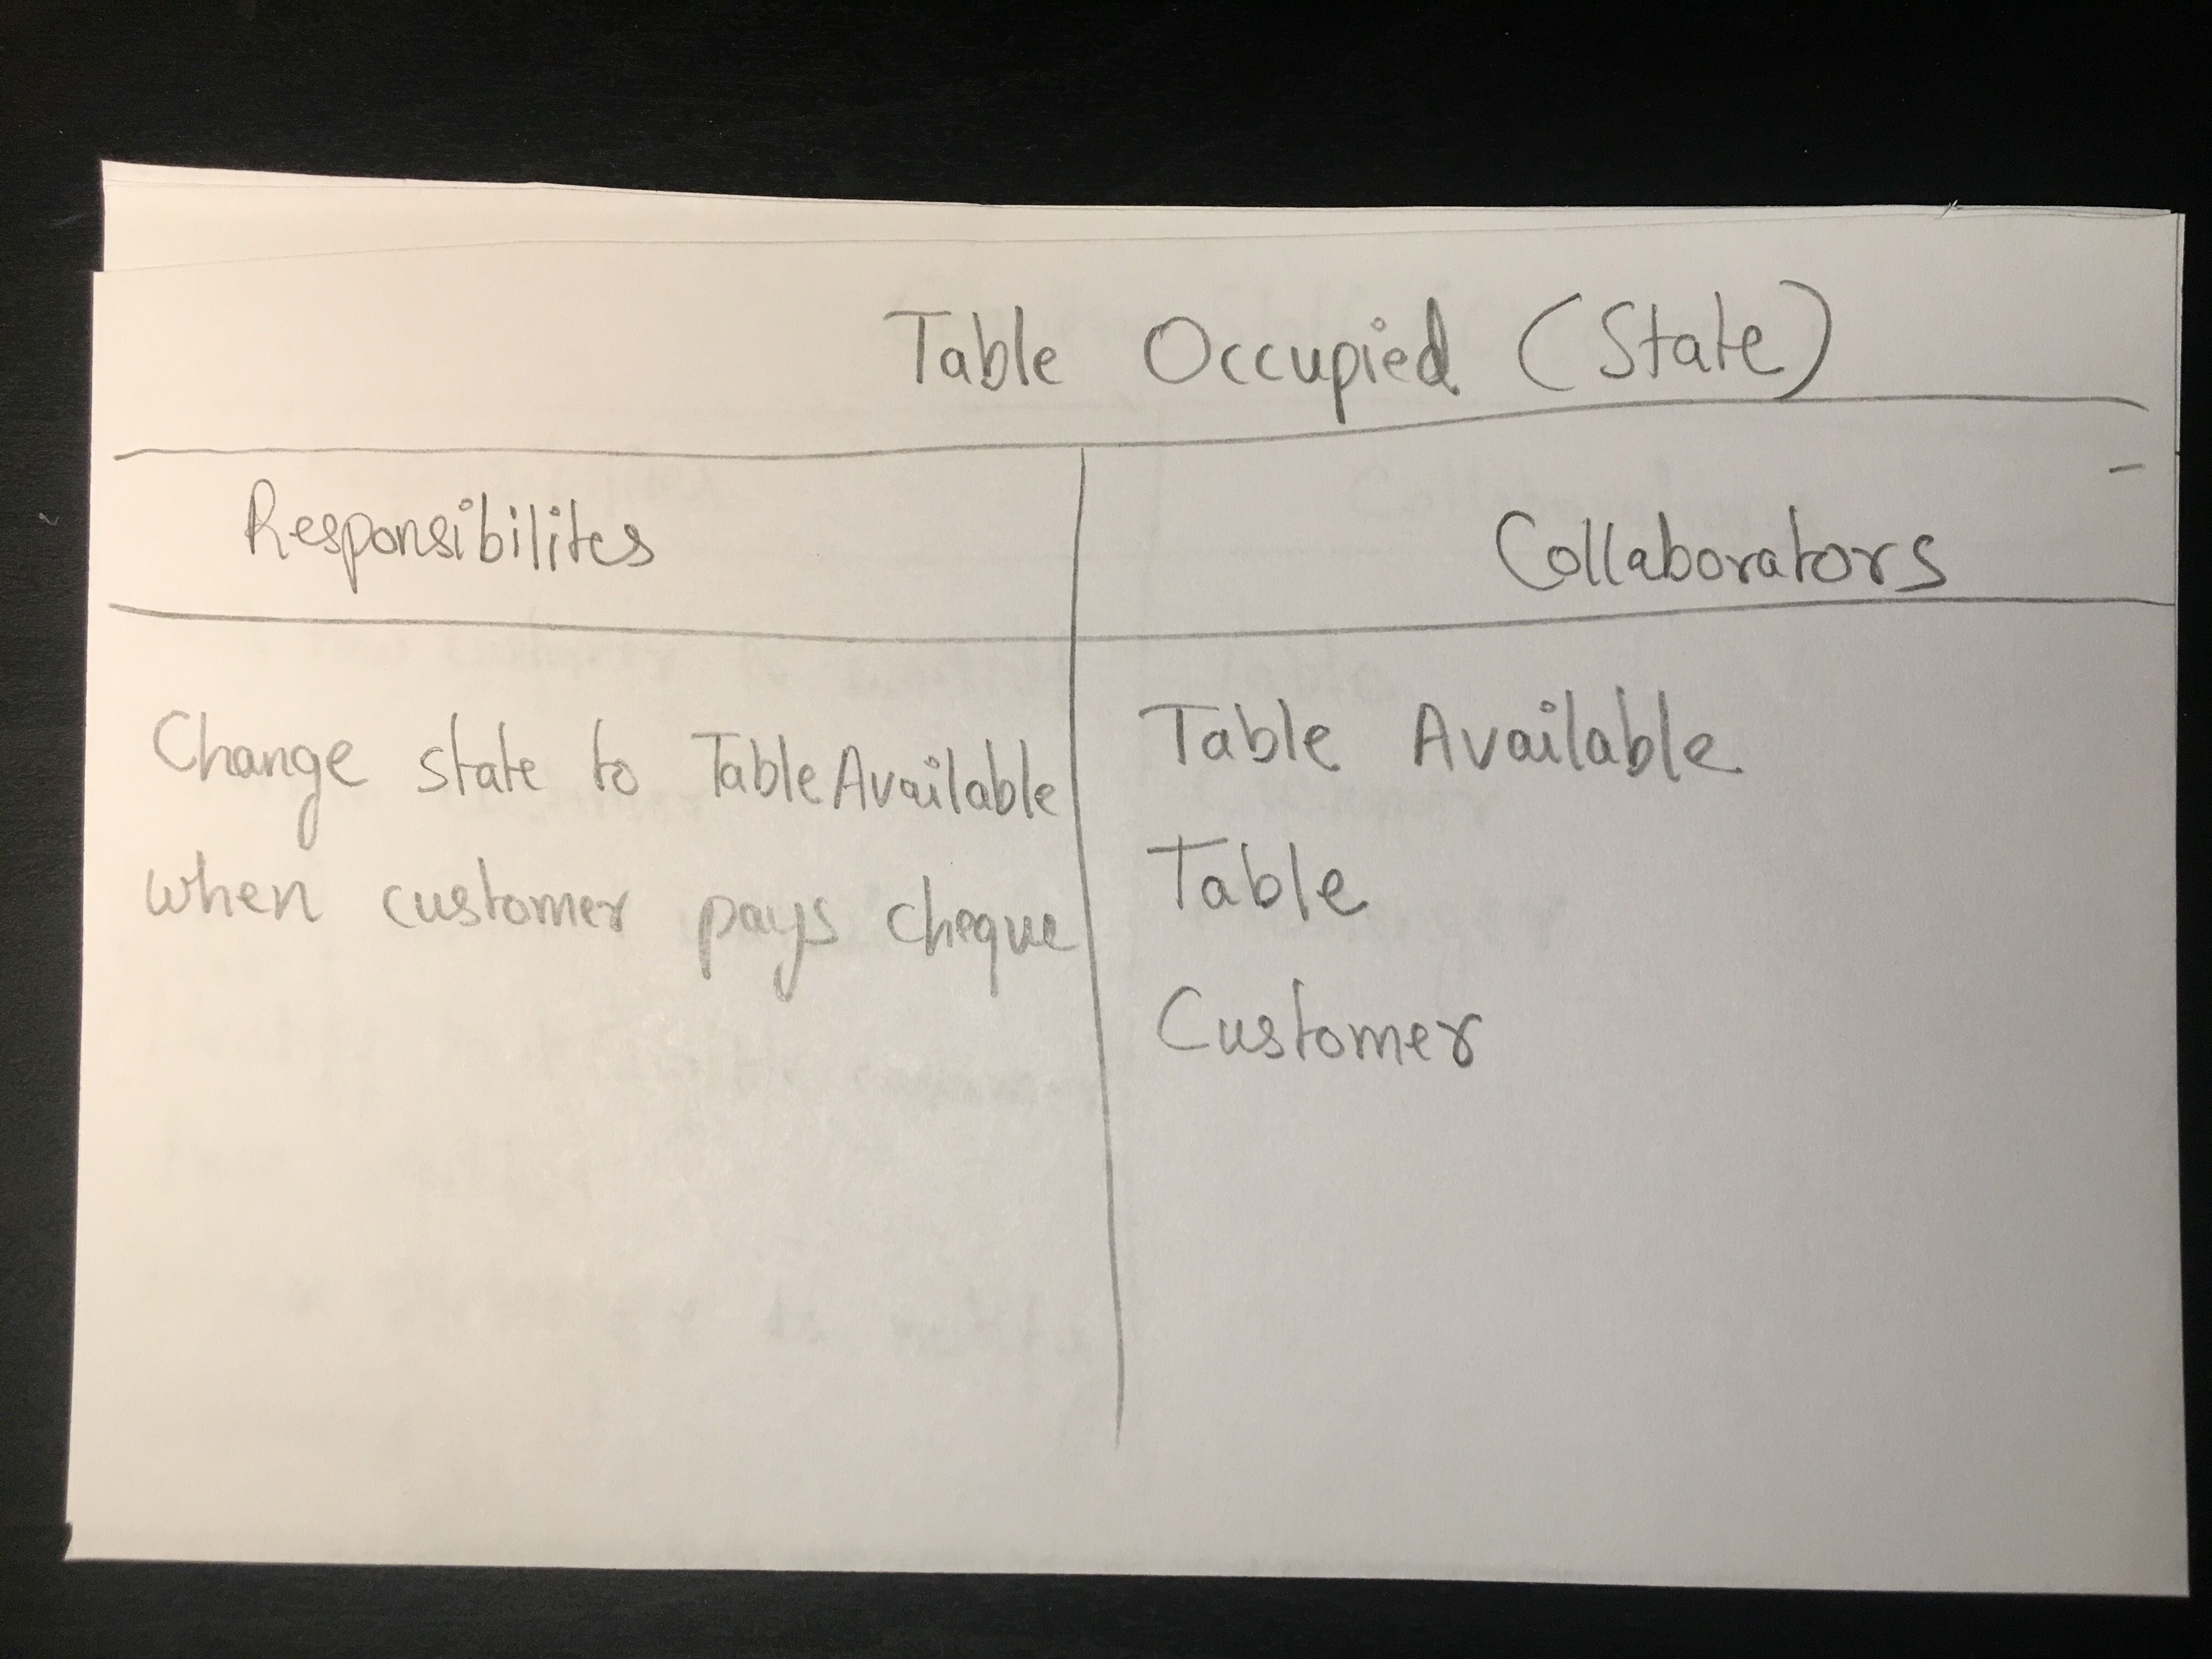 Table Occupied (State)
Responsibilites
Collaborators
Change state to TableAvailable
when customer pays cheque
Table Available
Table
Customer